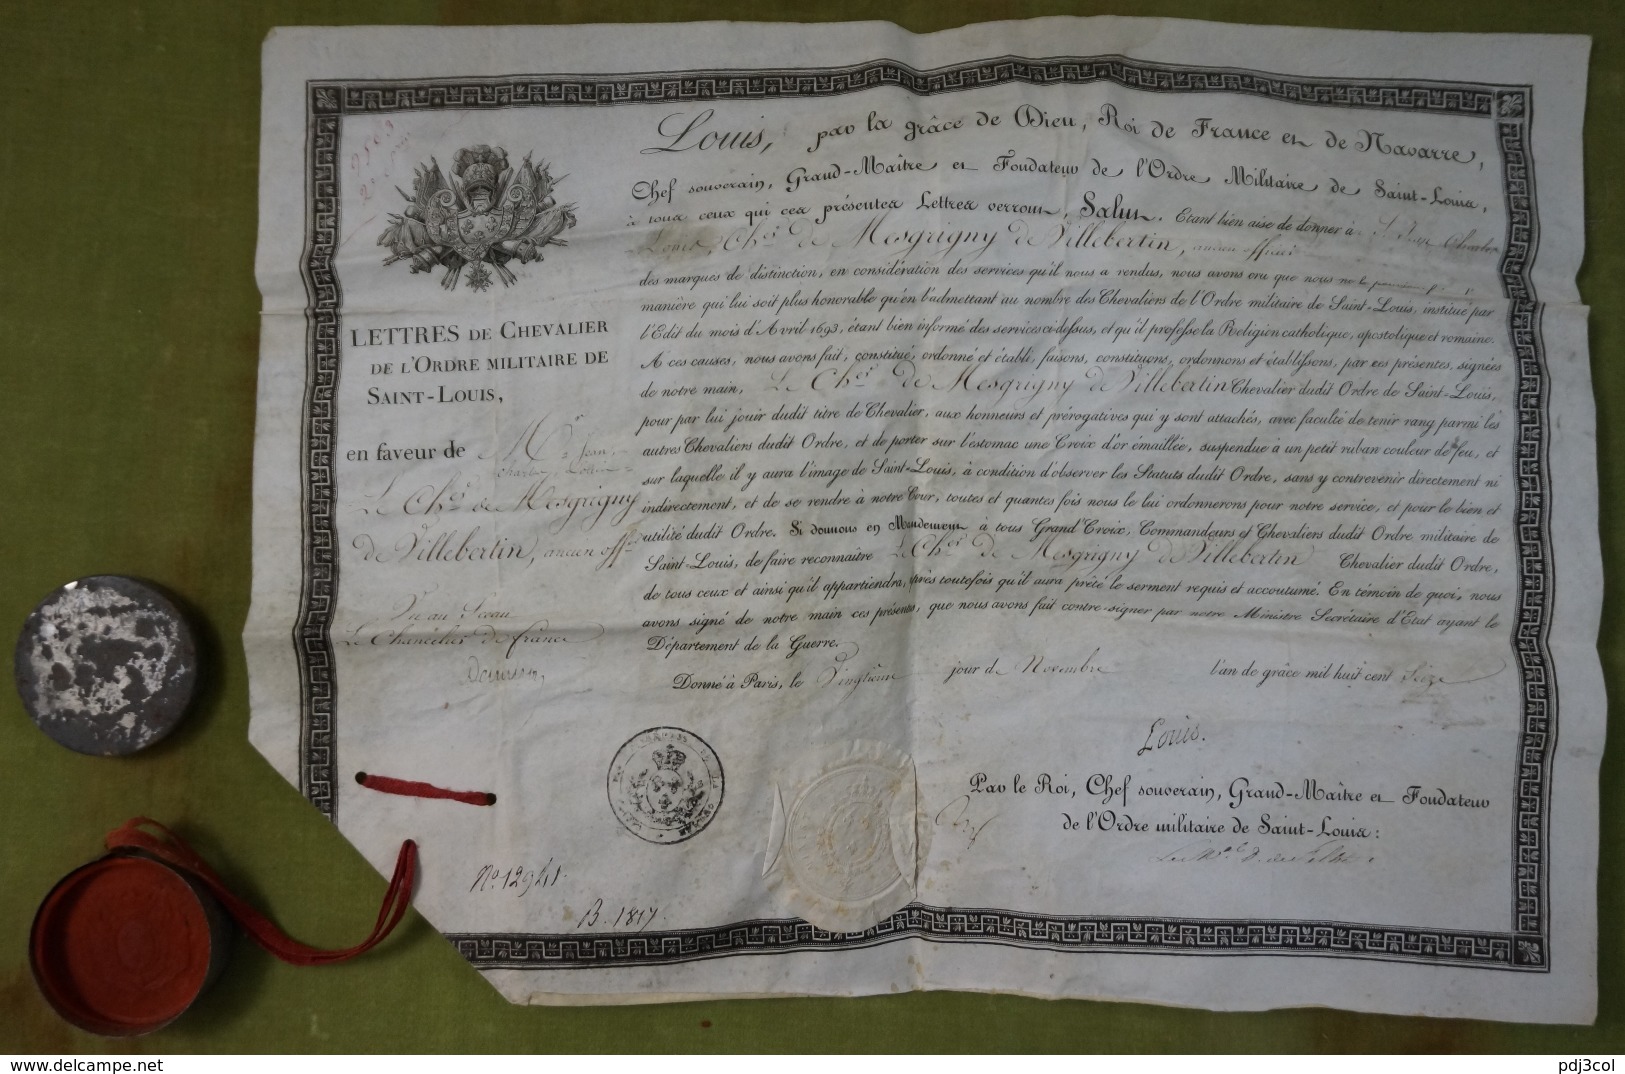 Louis, par la grâce de Dieu, Roi de France et de Navarre,
Chef souverain, Grand-Maître et Fondateur de l'Ordre Militaire de Saint-Louis,
à tous ceux qui ces présentes Lettres verront, Salut. Etant bien aise de donner à
Louis, Ch.er de Mesgrigny de Villebertin, ancien officier
des marques de distinction, en considération des services qu'il nous a rendus, nous avons cru que nous ne le
manière qui lui soit plus honorable qu'en l'admettant au nombre des Chevaliers de l'Ordre militaire de Saint-Louis, institué par
l'Edit du mois d'Avril 1693, étant bien informé des services ci-dessus, et qu'il professe la Religion catholique, apostolique et romaine.
A ces causes, nous avons fait, constitué, ordonné et établi, faisons, constituons, ordonnons et établissons, par ces présentes, signées
de notre main, Le Ch.er de Mesgrigny de Villebertin Chevalier dudit Ordre de Saint-Louis,
pour par lui jouir dudit titre de Chevalier, aux honneurs et prérogatives qui y sont attachés, avec faculté de tenir rang parmi les
autres Chevaliers dudit Ordre, et de porter sur l'estomac une Croix d'or émaillée, suspendue à un petit ruban couleur de feu, et
sur laquelle il y aura l'image de Saint-Louis, à condition d'observer les Statuts dudit Ordre, sans y contrevenir directement ni
indirectement, et de se rendre à notre Cour, toutes et quantes fois nous le lui ordonnerons pour notre service, et pour le bien et
utilité dudit Ordre. Si donnons en Mandement à tous Grand'Croix, Commandeurs et Chevaliers dudit Ordre militaire de
Saint-Louis, de faire reconnaître Le Ch.er de Mesgrigny de Villebertin Chevalier dudit Ordre,
de tous ceux et ainsi qu'il appartiendra, après toutefois qu'il aura prêté le serment requis et accoutumé. En témoin de quoi, nous
avons signé de notre main ces présentes, que nous avons fait contre-signer par notre Ministre Secrétaire d'Etat ayant le
Département de la Guerre.
Donné à Paris, le Vingtième jour de Novembre l'an de grâce mil huit cent Seize
Louis.
Par le Roi, Chef souverain, Grand-Maître et Fondateur
de l'Ordre militaire de Saint-Louis:
LETTRES DE CHEVALIER
DE L'ORDRE MILITAIRE DE
SAINT-LOUIS,
en faveur de M.r Jean
Charles Louis
Le Ch.er de Mesgrigny
de Villebertin, ancien off.er
Vu au Sceau
Le Chancelier de France
No. 12941.
B. 1817.
delcampe.net
pdj3col